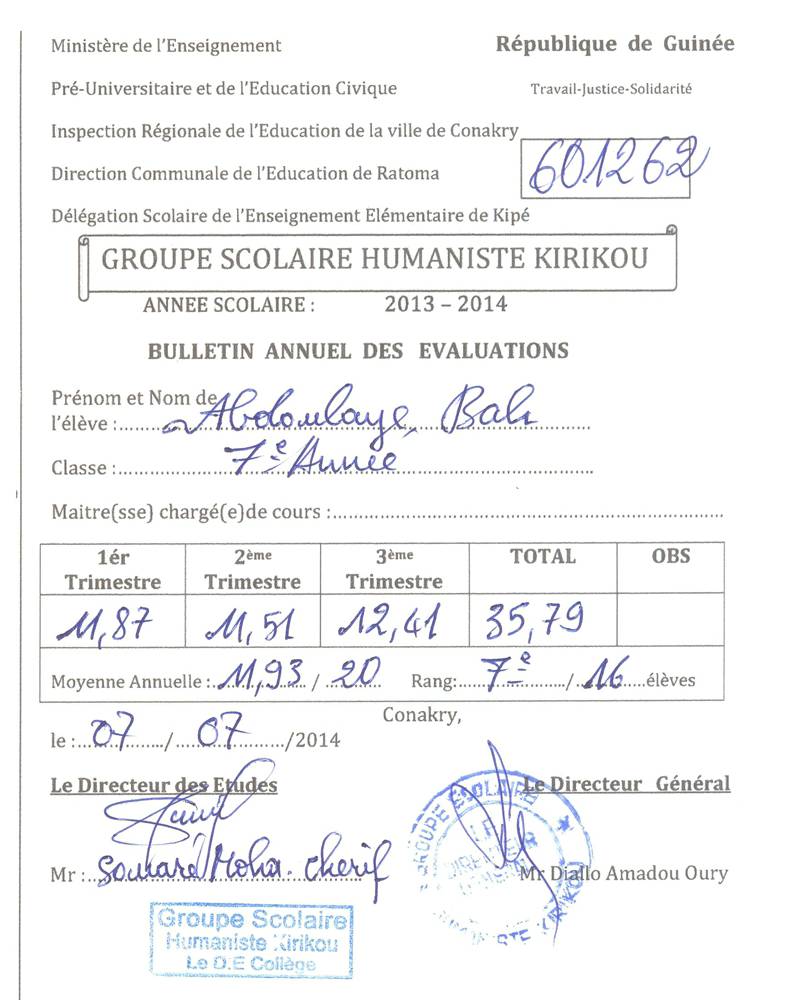 Ministère de l'Enseignement
République de Guinée
Pré-Universitaire et de l'Education Civique
Travail-Justice-Solidarité
Inspection Régionale de l'Education de la ville de Conakry
601262
Direction Communale de l'Education de Ratoma
Délégation Scolaire de l'Enseignement Elémentaire de Kipé
GROUPE SCOLAIRE HUMANISTE KIRIKOU
ANNEE SCOLAIRE : 2013 – 2014
BULLETIN ANNUEL DES EVALUATIONS
Prénom et Nom de
l'élève : Abdoulaye Bah
Classe : 7e Année
Maitre(sse) chargé(e)de cours :
1ér Trimestre 2ème Trimestre 3ème Trimestre TOTAL OBS
11,87 11,51 12,41 35,79
Moyenne Annuelle : 11,93 / 20 Rang: 7e / 16 élèves
Conakry,
le : 07 / 07 /2014
Le Directeur des Etudes Le Directeur Général
Mr : Soumaré Moha. Cherif
Mr Diallo Amadou Oury
GROUPE SCOLAIRE
LE DIRECTEUR
Groupe Scolaire
Humaniste Kirikou
Le D.E Collège